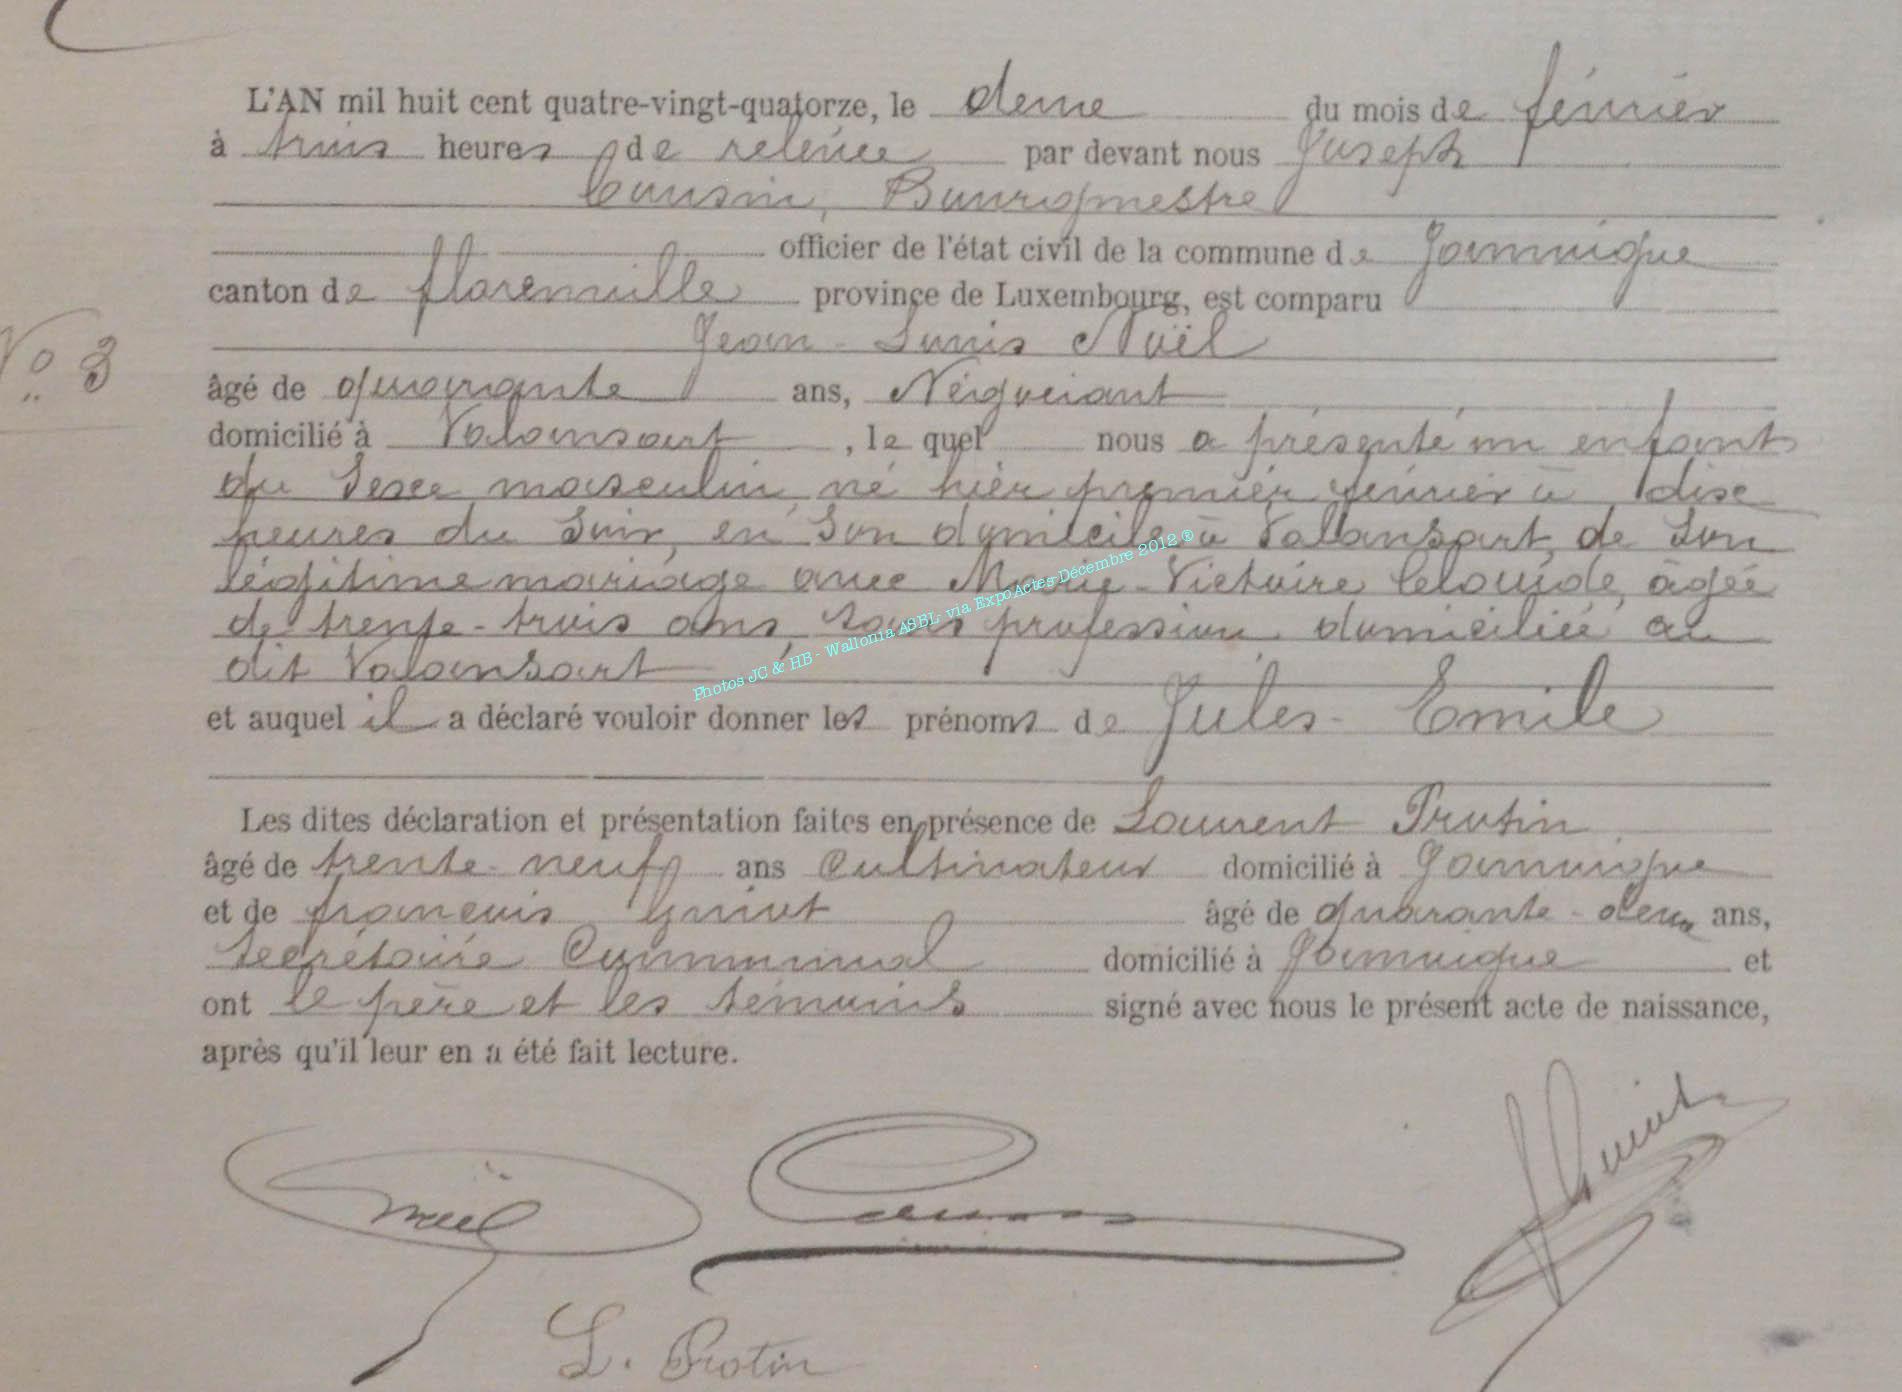 L'AN mil huit cent quatre-vingt-quatorze, le deux du mois de février
à trois heures de relevée par devant nous Joseph
Cousin, Bourgmestre
officier de l'état civil de la commune de Jamoigne
canton de florenville province de Luxembourg, est comparu
Jean-Louis Noël
N° 3
âgé de quarante ans, Négociant
domicilié à Valansart, le quel nous a présenté un enfant
du Sexe masculin, né hier premier février à dix
heures du Soir, en Son domicile à Valansart, de Son
légitime mariage avec Marie-Victoire, âgée
de trente-trois ans, sans profession domiciliée au
dit Valansart
et auquel il a déclaré vouloir donner les prénoms de Jules-Emile
Les dites déclaration et présentation faites en présence de Laurent Protin
âgé de trente-neuf ans Cultivateur domicilié à Jamoigne
et de françois Guiot âgé de quarante-deux ans,
Secrétaire Communal domicilié à Jamoigne et
ont le père et les témoins signé avec nous le présent acte de naissance,
après qu'il leur en a été fait lecture.
Noël Cousin Guiot
L. Protin
Photos JC & HB - Wallonia ASBL- via ExpoActes-Décembre 2012 ®